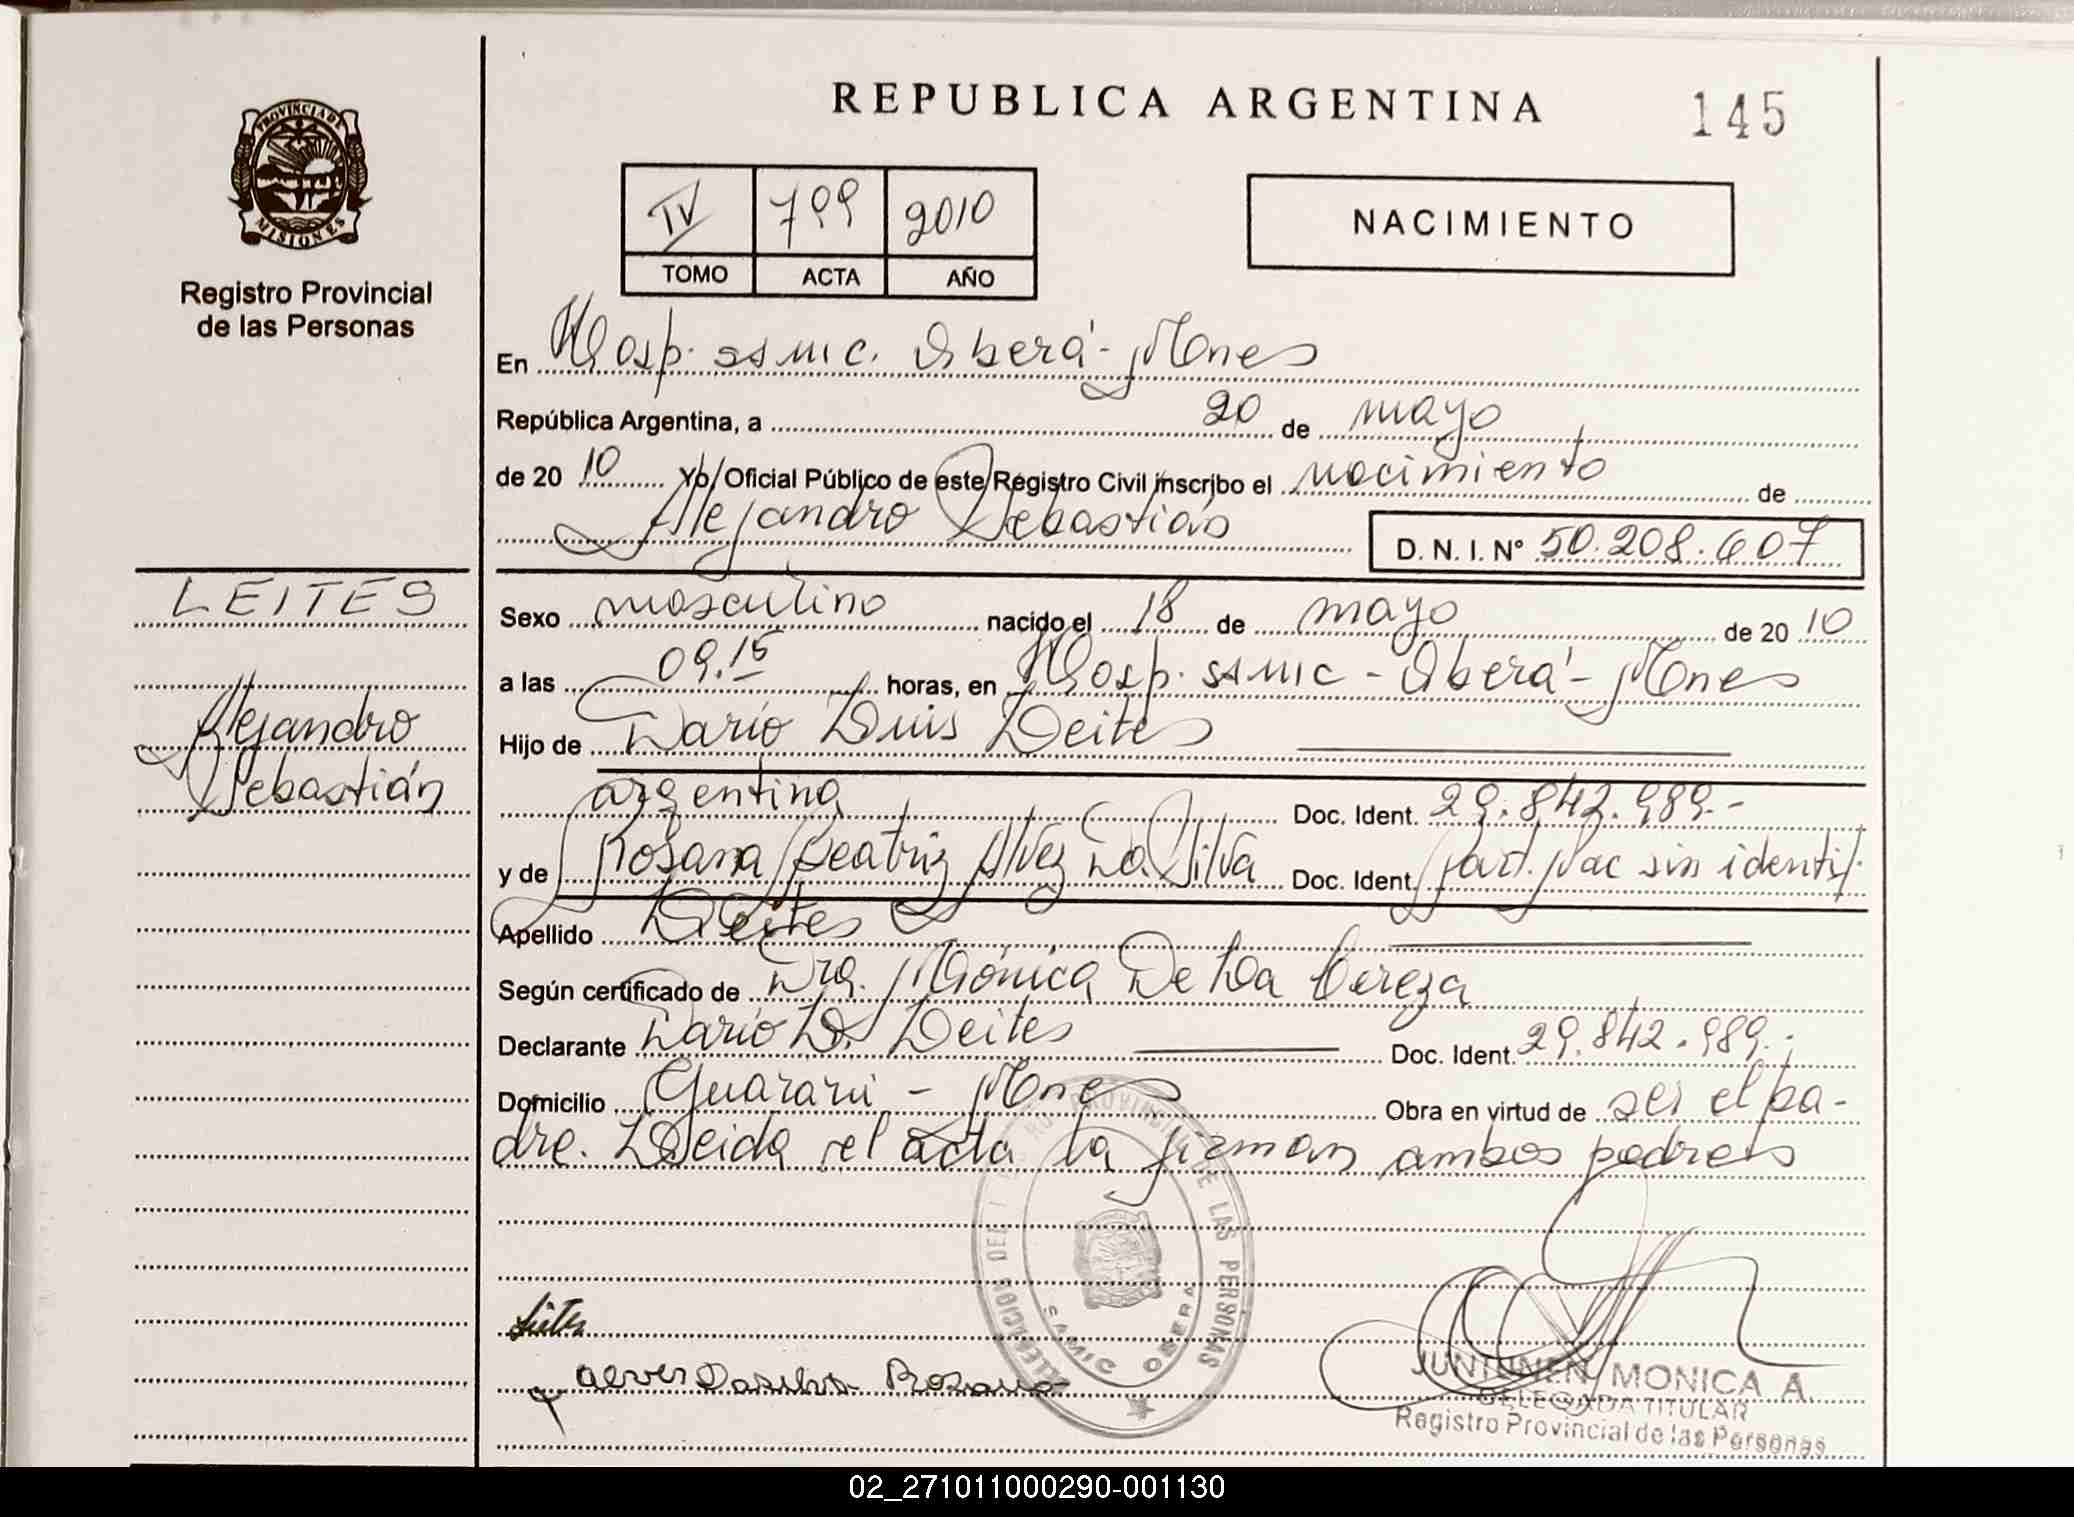 REPUBLICA ARGENTINA
145
PROVINCIA DE
MISIONES
Registro Provincial
de las Personas
IV 799 2010
TOMO ACTA AÑO
NACIMIENTO
En Hosp. SAMIC. Oberá - Mnes
República Argentina, a 20 de mayo
de 20 10 Yo, Oficial Público de este Registro Civil inscribo el nacimiento de
Alejandro Sebastián
D. N. I. Nº 50.208.607
LEITES
Alejandro
Sebastián
Sexo masculino nacido el 18 de mayo de 20 10
a las 09.15 horas, en Hosp. SAMIC - Oberá - Mnes
Hijo de Darío Luis Leites
argentino Doc. Ident. 29.842.989.-
y de Rosana Beatriz Alvez Da Silva Doc. Ident. Nac sin identif.
Apellido Leites
Según certificado de Dra. Mónica De La Cereza
Declarante Darío L. Leites Doc. Ident. 29.842.989.-
Domicilio Guaraní - Mnes Obra en virtud de ser el pa-
dre. Leida el acta la firman ambos padres
DE LAS PERSONAS
SAMIC OBERA
Alves Dasilva Rosana
JUNTUNEN, MONICA A.
DELEGADA TITULAR
Registro Provincial de las Personas
02_271011000290-001130